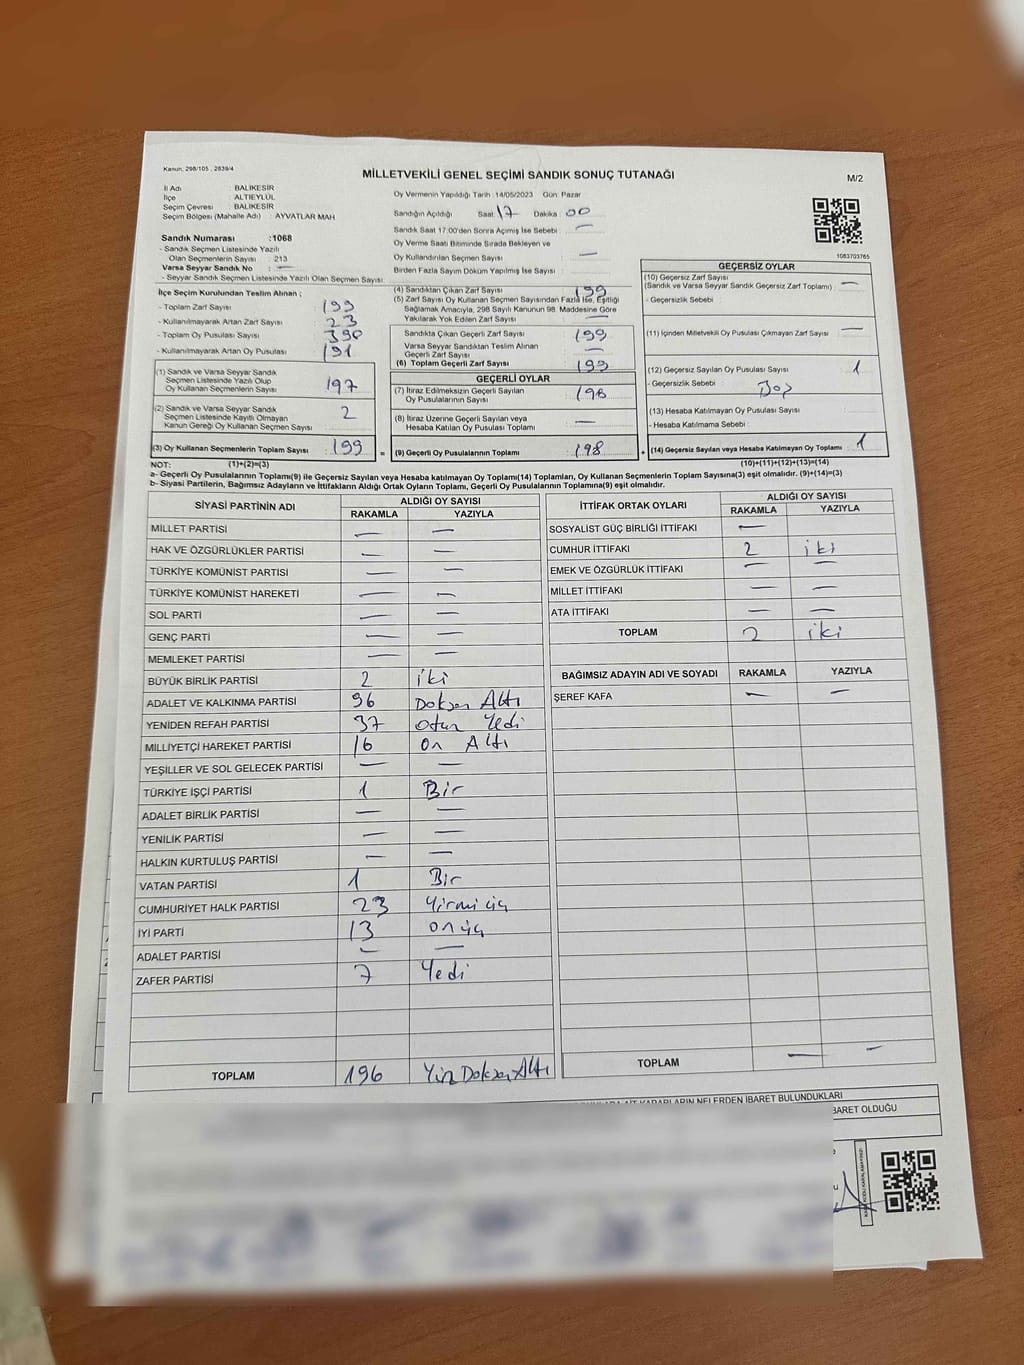 Kanun: 298/105 , 2839/4
MİLLETVEKİLİ GENEL SEÇİMİ SANDIK SONUÇ TUTANAĞI
M/2
İl Adı : BALIKESİR
İlçe : ALTIEYLÜL
Seçim Çevresi : BALIKESİR
Seçim Bölgesi (Mahalle Adı) : AYVATLAR MAH
Sandık Numarası :1068
- Sandık Seçmen Listesinde Yazılı
Olan Seçmenlerin Sayısı : 213
Varsa Seyyar Sandık No : —
- Seyyar Sandık Seçmen Listesinde Yazılı Olan Seçmen Sayısı :
Oy Vermenin Yapıldığı Tarih :14/05/2023 Gün: Pazar
Sandığın Açıldığı Saat : 17 Dakika : 00
Sandık Saat 17:00'den Sonra Açımış İse Sebebi : —
Oy Verme Saati Bitiminde Sırada Bekleyen ve
Oy Kullandırılan Seçmen Sayısı : —
Birden Fazla Sayım Döküm Yapılmış İse Sayısı :
1083703765
İlçe Seçim Kurulundan Teslim Alınan ;
- Toplam Zarf Sayısı : 199
- Kullanılmayarak Artan Zarf Sayısı : 23
- Toplam Oy Pusulası Sayısı : 390
- Kullanılmayarak Artan Oy Pusulası : 191
(1) Sandık ve Varsa Seyyar Sandık
Seçmen Listesinde Yazılı Olup
Oy Kullanan Seçmenlerin Sayısı : 197
(2) Sandık ve Varsa Seyyar Sandık
Seçmen Listesinde Kayıtlı Olmayan
Kanun Gereği Oy Kullanan Seçmen Sayısı : 2
(3) Oy Kullanan Seçmenlerin Toplam Sayısı : 199
(4) Sandıktan Çıkan Zarf Sayısı : 199
(5) Zarf Sayısı Oy Kullanan Seçmen Sayısından Fazla İse, Eşitliği
Sağlamak Amacıyla, 298 Sayılı Kanunun 98. Maddesine Göre
Yakılarak Yok Edilen Zarf Sayısı : —
Sandıkta Çıkan Geçerli Zarf Sayısı : 199
Varsa Seyyar Sandıktan Teslim Alınan
Geçerli Zarf Sayısı : —
(6) Toplam Geçerli Zarf Sayısı : 199
GEÇERLİ OYLAR
(7) İtiraz Edilmeksizin Geçerli Sayılan
Oy Pusulalarının Sayısı : 198
(8) İtiraz Üzerine Geçerli Sayılan veya
Hesaba Katılan Oy Pusulası Toplamı : —
= (9) Geçerli Oy Pusulalarının Toplamı : 198
GEÇERSİZ OYLAR
(10) Geçersiz Zarf Sayısı
(Sandık ve Varsa Seyyar Sandık Geçersiz Zarf Toplamı) : —
- Geçersizlik Sebebi :
(11) İçinden Milletvekili Oy Pusulası Çıkmayan Zarf Sayısı : —
(12) Geçersiz Sayılan Oy Pusulası Sayısı : 1
- Geçersizlik Sebebi : Boş
(13) Hesaba Katılmayan Oy Pusulası Sayısı :
- Hesaba Katılmama Sebebi :
+ (14) Geçersiz Sayılan veya Hesaba Katılmayan Oy Toplamı : 1
NOT: (1)+(2)=(3) (10)+(11)+(12)+(13)=(14)
a- Geçerli Oy Pusulalarının Toplamı(9) ile Geçersiz Sayılan veya Hesaba katılmayan Oy Toplamı(14) Toplamları, Oy Kullanan Seçmenlerin Toplam Sayısına(3) eşit olmalıdır. (9)+(14)=(3)
b- Siyasi Partilerin, Bağımsız Adayların ve İttifakların Aldığı Ortak Oyların Toplamı, Geçerli Oy Pusulalarının Toplamına(9) eşit olmalıdır.
SİYASİ PARTİNİN ADI ALDIĞI OY SAYISI
RAKAMLA YAZIYLA
MİLLET PARTİSİ — —
HAK VE ÖZGÜRLÜKLER PARTİSİ — —
TÜRKİYE KOMÜNİST PARTİSİ — —
TÜRKİYE KOMÜNİST HAREKETİ — —
SOL PARTİ — —
GENÇ PARTİ — —
MEMLEKET PARTİSİ — —
BÜYÜK BİRLİK PARTİSİ 2 iki
ADALET VE KALKINMA PARTİSİ 96 Doksan Altı
YENİDEN REFAH PARTİSİ 37 Otuz Yedi
MİLLİYETÇİ HAREKET PARTİSİ 16 On Altı
YEŞİLLER VE SOL GELECEK PARTİSİ — —
TÜRKİYE İŞÇİ PARTİSİ 1 Bir
ADALET BİRLİK PARTİSİ — —
YENİLİK PARTİSİ — —
HALKIN KURTULUŞ PARTİSİ — —
VATAN PARTİSİ 1 Bir
CUMHURİYET HALK PARTİSİ 23 Yirmi üç
İYİ PARTİ 13 On üç
ADALET PARTİSİ — —
ZAFER PARTİSİ 7 Yedi
TOPLAM 196 Yüz Doksan Altı
İTTİFAK ORTAK OYLARI ALDIĞI OY SAYISI
RAKAMLA YAZIYLA
SOSYALİST GÜÇ BİRLİĞİ İTTİFAKI —
CUMHUR İTTİFAKI 2 iki
EMEK VE ÖZGÜRLÜK İTTİFAKI — —
MİLLET İTTİFAKI — —
ATA İTTİFAKI — —
TOPLAM 2 iki
BAĞIMSIZ ADAYIN ADI VE SOYADI RAKAMLA YAZIYLA
ŞEREF KAFA — —
TOPLAM — —
KARARLARIN NELERDEN İBARET BULUNDUKLARI
BARET OLDUĞU